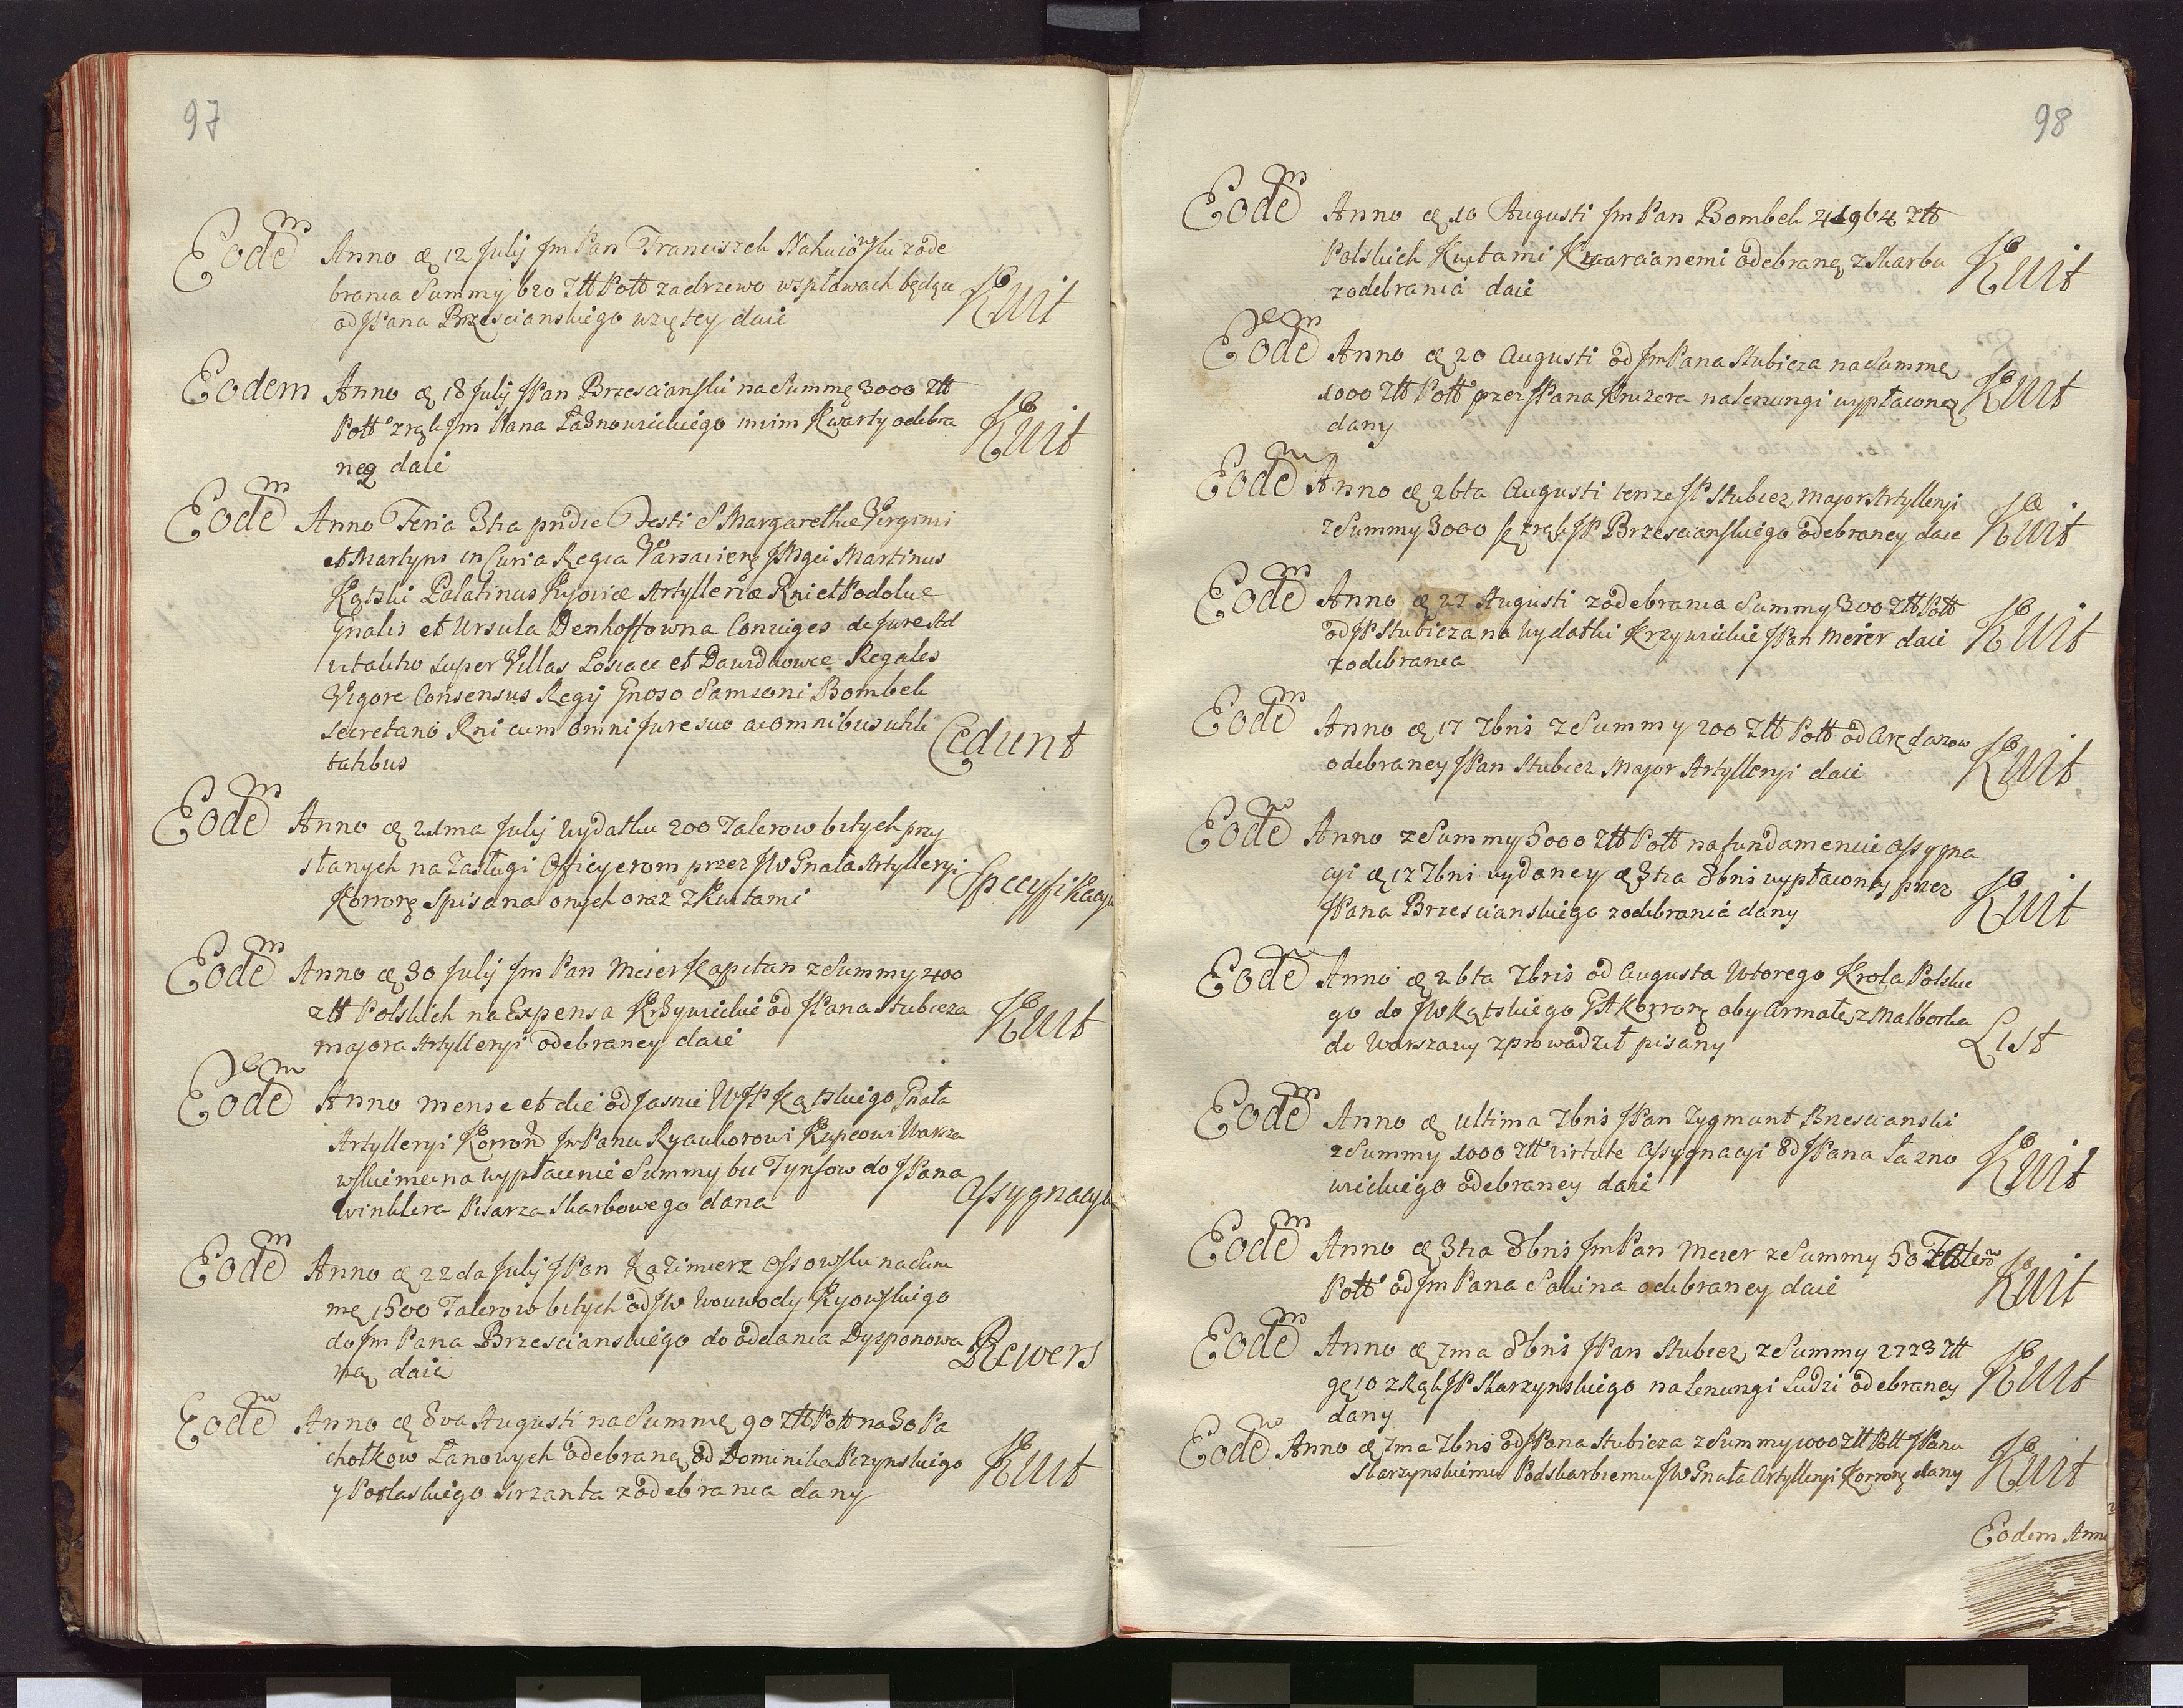 97
Eodem Anno æ 12 July Jm Pan Franciszek Nahuiowski zode
brania Summy 620 Ztt Pott za drzewo wspławach będące Kwit
od JPana Brzescianskiego wziętey daie
Eodem Anno æ 18 July JPan Brzescianski na Summę 3000 Ztt
Pott zrąk Jm Pana Łaznowickiego Kwarty odebra Kwit
ną daie
Eodem Anno Feria 3tia pridie Festi S Margarethæ Virginis
et Martyris in Curia Regia Varsaviens JMgci Martinus
Kątski Palatinus Kyoviæ Artylleriæ Rni et Podoliæ
Gnalis et Ursula Denhoffowna Coniuges de Jure Ad
vitalitio super Villas Losiace et Dawidkowce Regales
Vigore Consensus Regy Gnoso Samsoni Bombek
Secretario Rni cum omni Jure suo ac omnibus utili Cedunt
tatibus
Eodem Anno æ 21ma July wydatku 200 Talerow bitych przy
słanych na Zasługi Officyerom przez JW Gnała Artylleryi Specyfikacya
Korronę Spisana onych oraz z Kwitami
Eodem Anno æ 30 July Jm Pan Meier Kapitan z Summy 400
ztt Polskich na Expensa Krzywickie od JPana Stubicza Kwit
majora Artylleryi odebraney daie
Eodem Anno mense et die od Jasnie WJP Kątskiego Gnała
Artylleryi Korron Jm Panu Ryaukorowi Kupcowi Warsza
wskiemu na wypłacenie Summy Tynfow do JPana Assygnacya
Winklera Pisarza Skarbowego dana
Eodem Anno æ 22da July JPan Kazimierz Ossowski na Sum
mę 1500 Talerow bitych od JW Woiewody Kyowskiego
do Jm Pana Brzescianskiego do oddania Dysponowa Rewers
ną daie
Eodem Anno æ 8va Augusti na Summę 90 Ztt Pott na 30 Pa
chołkow Łanowych odebraną od Dominika Pczynskiego Kwit
y Potlaskiego sierzanta zodebrania dany
98
Eodem Anno æ 10 Augusti Jm Pan Bombek 41964 Ztt
Polskich Kwitami Kwarcianemi odebraną z Skarbu Kwit
zodebrania daie
Eodem Anno æ 20 Augusti od Jm Pana Stubicza na Summę
1000 Ztt Pott przez JPana Kruzera na Lenungi wypłaconą Kwit
dany
Eodem Anno æ 26ta Augusti tenze JP Stubicz Major Artylleryi
z Summy 3000 zrąk JP Brzescianskiego odebraney daie Kwit
Eodem Anno æ 27 Augusti zodebrania Summy 300 Ztt Pott
od JP Stubicza na Wydatki Krzywickie JPan Meier daie Kwit
zodebrania
Eodem Anno æ 17 7bris z Summy 200 Ztt Pott od Arędarzow
odebraney JPan Stubicz Major Artylleryi daie Kwit
Eodem Anno z Summy 5000 Ztt Pott na fundamencie Assygna
cyi æ 17 7bris wydaney æ 3tia 8bris wypłaconey przez Kwit
JPana Brzescianskiego zodebrania dany
Eodem Anno æ 26ta 7bris od Augusta Wtorego Krola Polskie
go do JW Kątskiego GA Korronę aby Armatę z Malborka List
do Warszawy zprowadził pisany
Eodem Anno æ Ultima 7bris JPan Zygmunt Brzescianski
z Summy 1000 Ztt virtute Assygnacyi od JPana Łazno Kwit
wickiego odebraney daie
Eodem Anno æ 3tia 8bris Jm Pan Meier z Summy 50
Pott od Jm Pana Sakina odebraney daie Kwit
Eodem Anno æ 7ma 8bris JPan Stubicz z Summy 2723 Ztt
gę 10 z Rąk JP Skarzynskiego na Lenungi Ludzi odebraney Kwit
dany
Eodem Anno æ 7ma 7bris od JPana Stubicza z Summy 1000 Ztt Pott JPanu
Skarzynskiemu Podskarbiemu JW Gnała Artylleryi Korronę dany Kwit
Eodem Anno